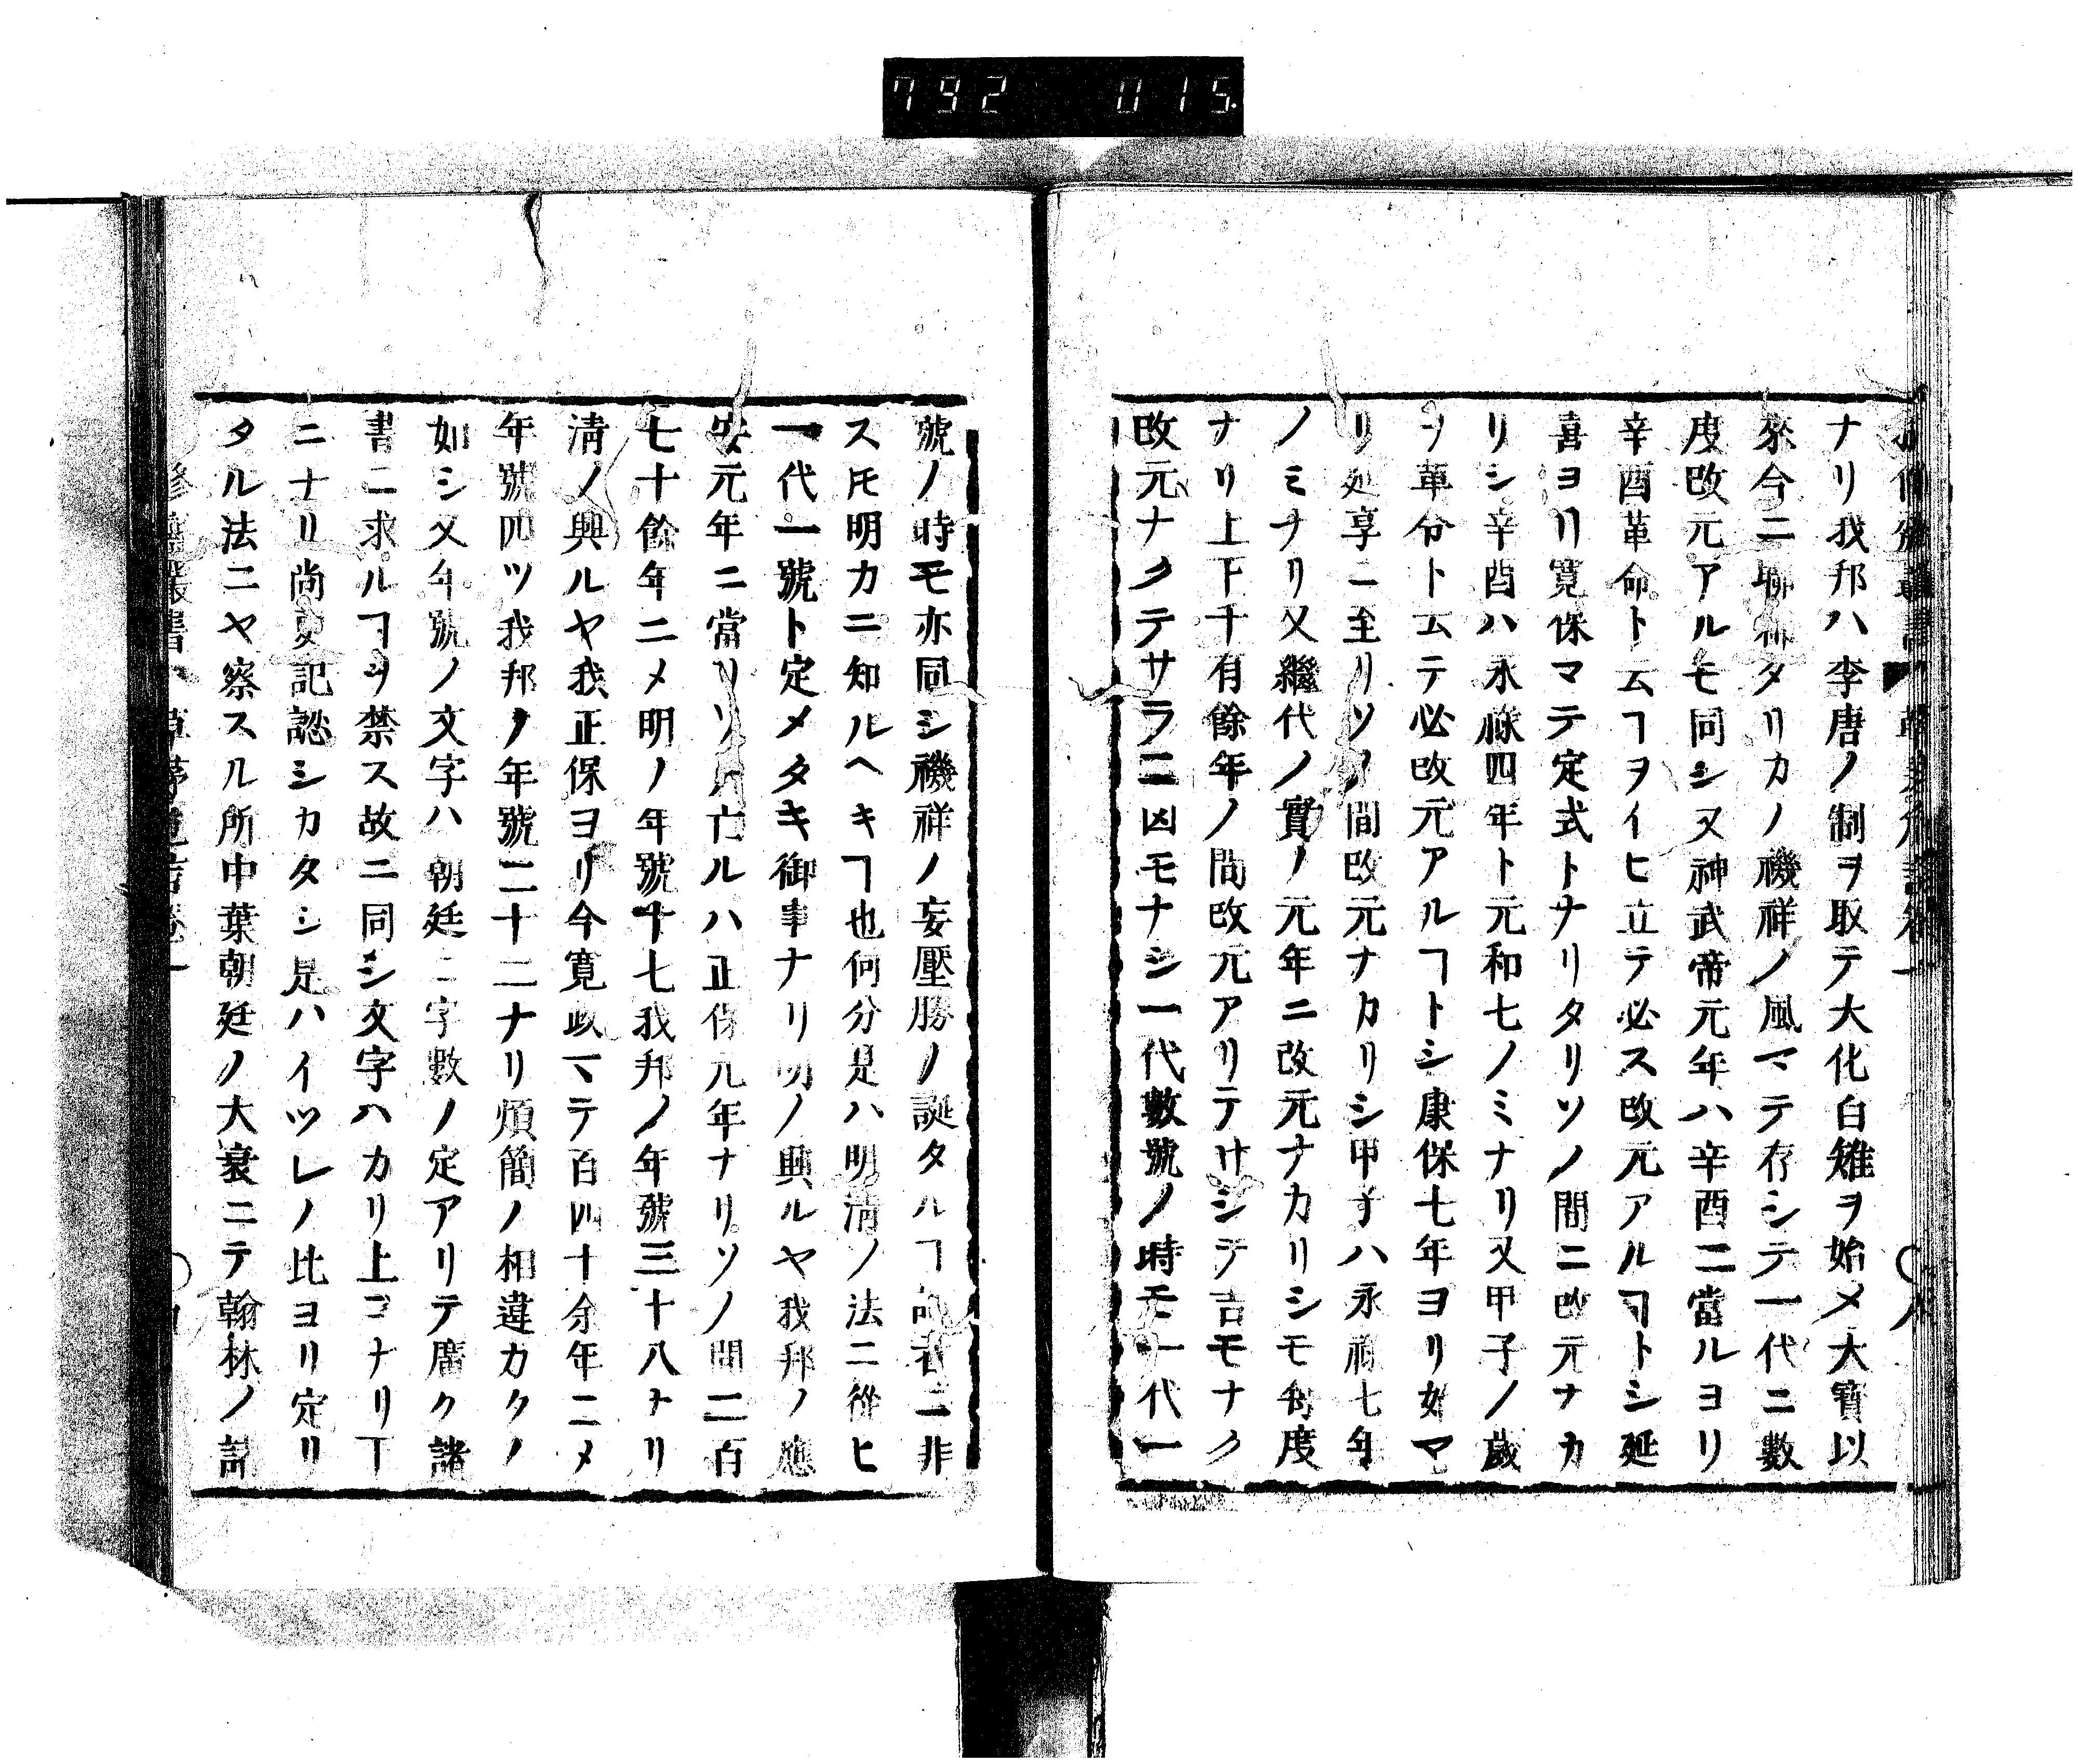 792 015
ナリ我邦ハ李唐ノ制ヲ取テ大化白雉ヲ始メ大寶以
來今ニ聯綿タリカノ禨祥ノ風マテ存シテ一代ニ數
度改元アルモ同シ又神武帝元年ハ辛酉ニ當ルヨリ
辛酉革命ト云ヿヲイヒ立テ必ス改元アルヿトシ延
喜ヨリ寛保マテ定式トナリタリソノ間ニ改元ナカ
リシ辛酉ハ永祿四年ト元和七ノミナリ又甲子ノ歲
ヲ革令ト云テ必改元アルヿトシ康保七年ヨリ始マ
リ延享ニ至リソノ間改元ナカリシ甲子ハ永祿七年
ノミナリ又繼代ノ實ノ元年ニ改元ナカリシモ每度
ナリ上下千有餘年ノ間改元アリテサシテ吉モナク
改元ナクテサラニ凶モナシ一代數號ノ時モ一代一
號ノ時モ亦同シ禨祥ノ妄壓勝ノ誕タルヿ二非
スㇳモ明カニ知ルヘキヿ也何分是ハ明淸ノ法ニ從ヒ
一代一號ト定メタキ御事ナリ明ノ興ルヤ我邦ノ應
安元年ニ當リソノ亡ルハ正保元年ナリソノ間二百
七十餘年ニメ明ノ年號十七我邦ノ年號三十八ナリ
淸ノ興ルヤ我正保ヨリ今寛政マテ百四十余年ニメ
年號四ツ我邦ノ年號二十二ナリ煩簡ノ相違カクノ
如シ又年號ノ文字ハ朝廷ニ字數ノ定アリテ廣ク諸
書ニ求ルヿヲ禁ス故ニ同シ文字ハカリ上ゴナリ下
ニナリ尚更記認シカタシ是ハイツレノ比ヨリ定リ
タル法ニヤ察スル所中葉朝廷ノ大衰ニテ翰林ノ諸